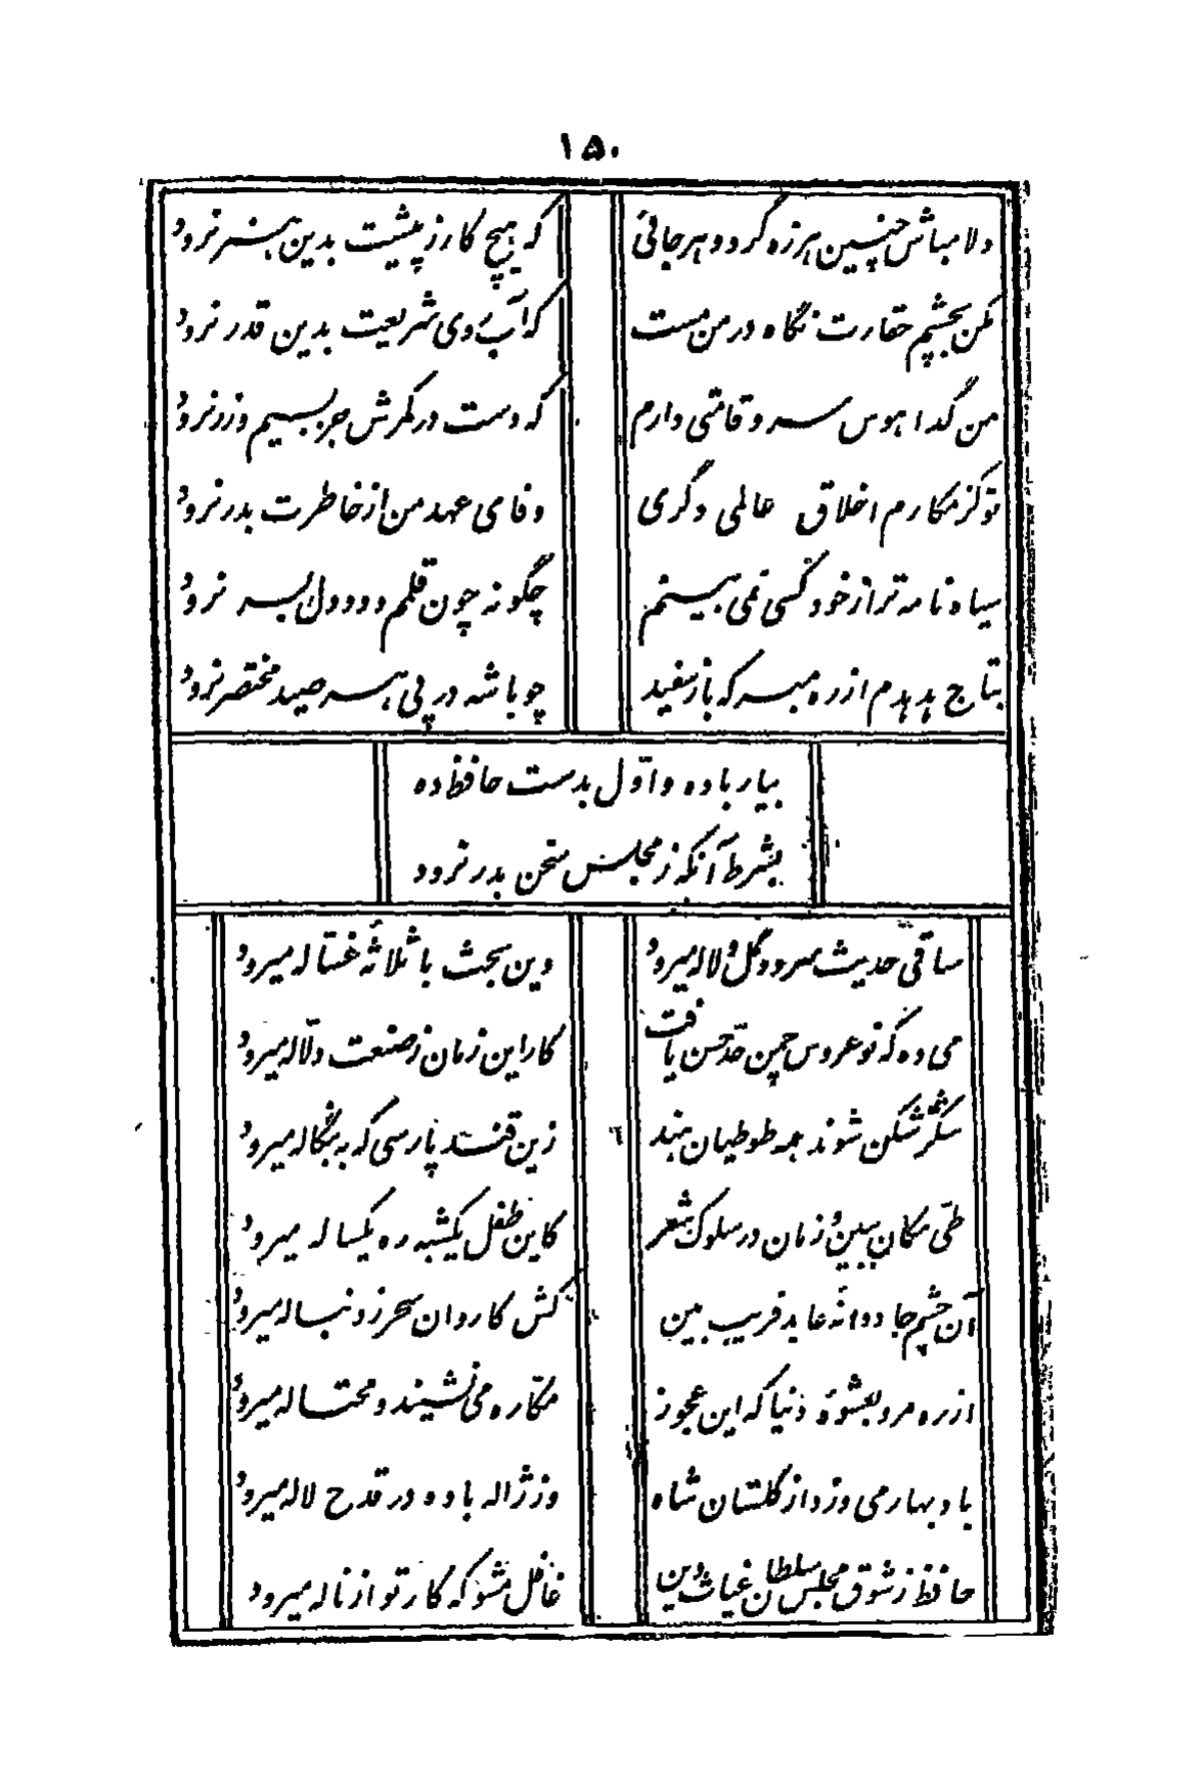 ۱۵۰
دلا مباش چنین هرزه گرد و هرجائی
که هیچ کار ز پیشت بدین هنر نرود
مکن بچشم حقارت نگاه در من مست
که آب روی شریعت بدین قدر نرود
من گدا هوس سرو قامتی دارم
که دست در کمرش جز بسیم و زر نرود
تو کز مکارم اخلاق عالمی دگری
وفای عهد من از خاطرت بدر نرود
سیاه نامه تر از خود کسی نمی بینم
چگونه چون قلمم دود دل بسر نرود
بتاج هدهدم از ره مبر که باز سفید
چو باشه در پی هر صید مختصر نرود
بیار باده و اوّل بدست حافظ ده
بشرط آنکه ز مجلس سخن بدر نرود
ساقی حدیث سرو و گل و لاله میرود
وین بحث با ثلاثهٔ غسّاله میرود
می ده که نو عروس چمن حدّ حسن یافت
کار این زمان ز صنعت دلّاله میرود
شکّر شکن شوند همه طوطیان هند
زین قند پارسی که به بنگاله میرود
طیّ مکان ببین و زمان در سلوک شعر
کاین طفل یکشبه ره یکساله میرود
آن چشم جادوانهٔ عابد فریب بین
کش کاروان سحر ز دنباله میرود
از ره مرو بعشوهٔ دنیا که این عجوز
مکّاره می نشیند و محتاله میرود
باد بهار می وزد از گلستان شاه
وز ژاله باده در قدح لاله میرود
حافظ ز شوق مجلس سلطان غیاث دین
غافل مشو که کار تو از ناله میرود